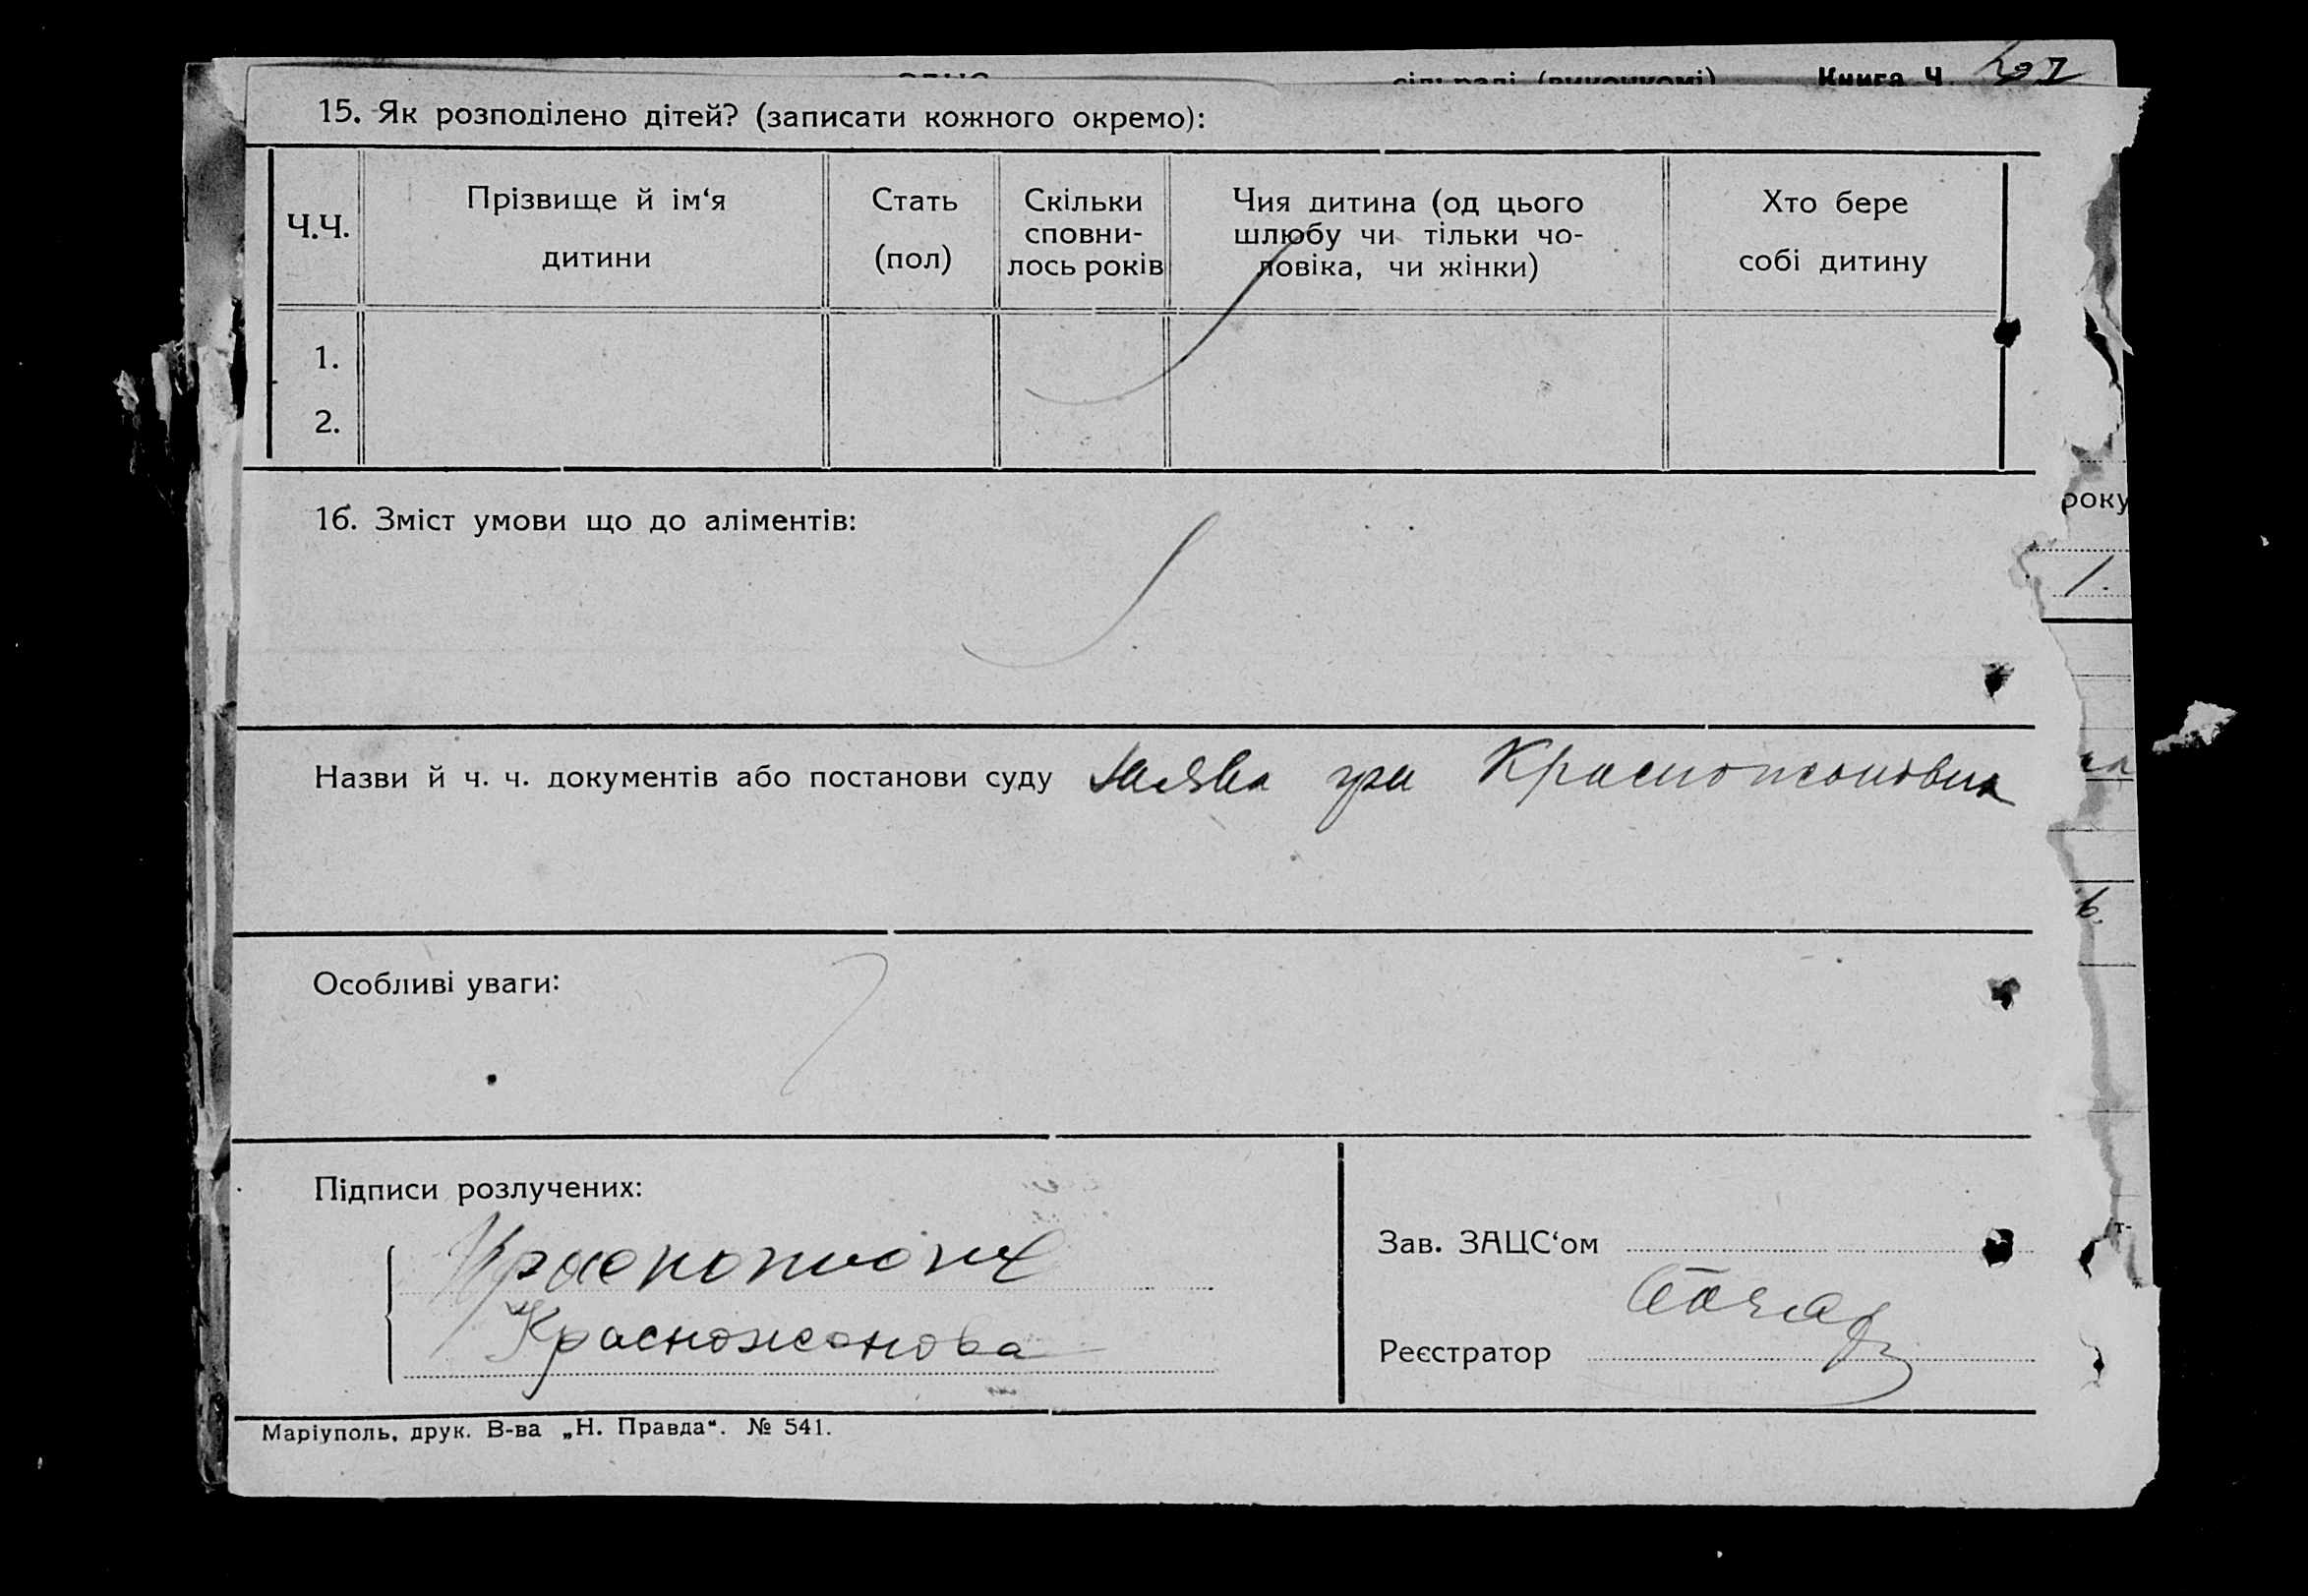 Книга Ч.
15. Як розподілено дітей? (записати кожного окремо):
Ч.Ч.
Прізвище й ім‘я
дитини
Стать
(пол)
Скільки
сповни-
лось років
Чия дитина (од цього
шлюбу чи тільки чо-
ловіка, чи жінки)
Хто бере
собі дитину
1.
2.
року
16. Зміст умови що до аліментів:
Назви й ч. ч. документів або постанови суду Заява гр-н
Особливі уваги:
Підписи розлучених:
Красножонова
Зав. ЗАЦС‘ом
Реєстратор
Маріуполь, друк. В-ва „Н. Правда“. № 541.